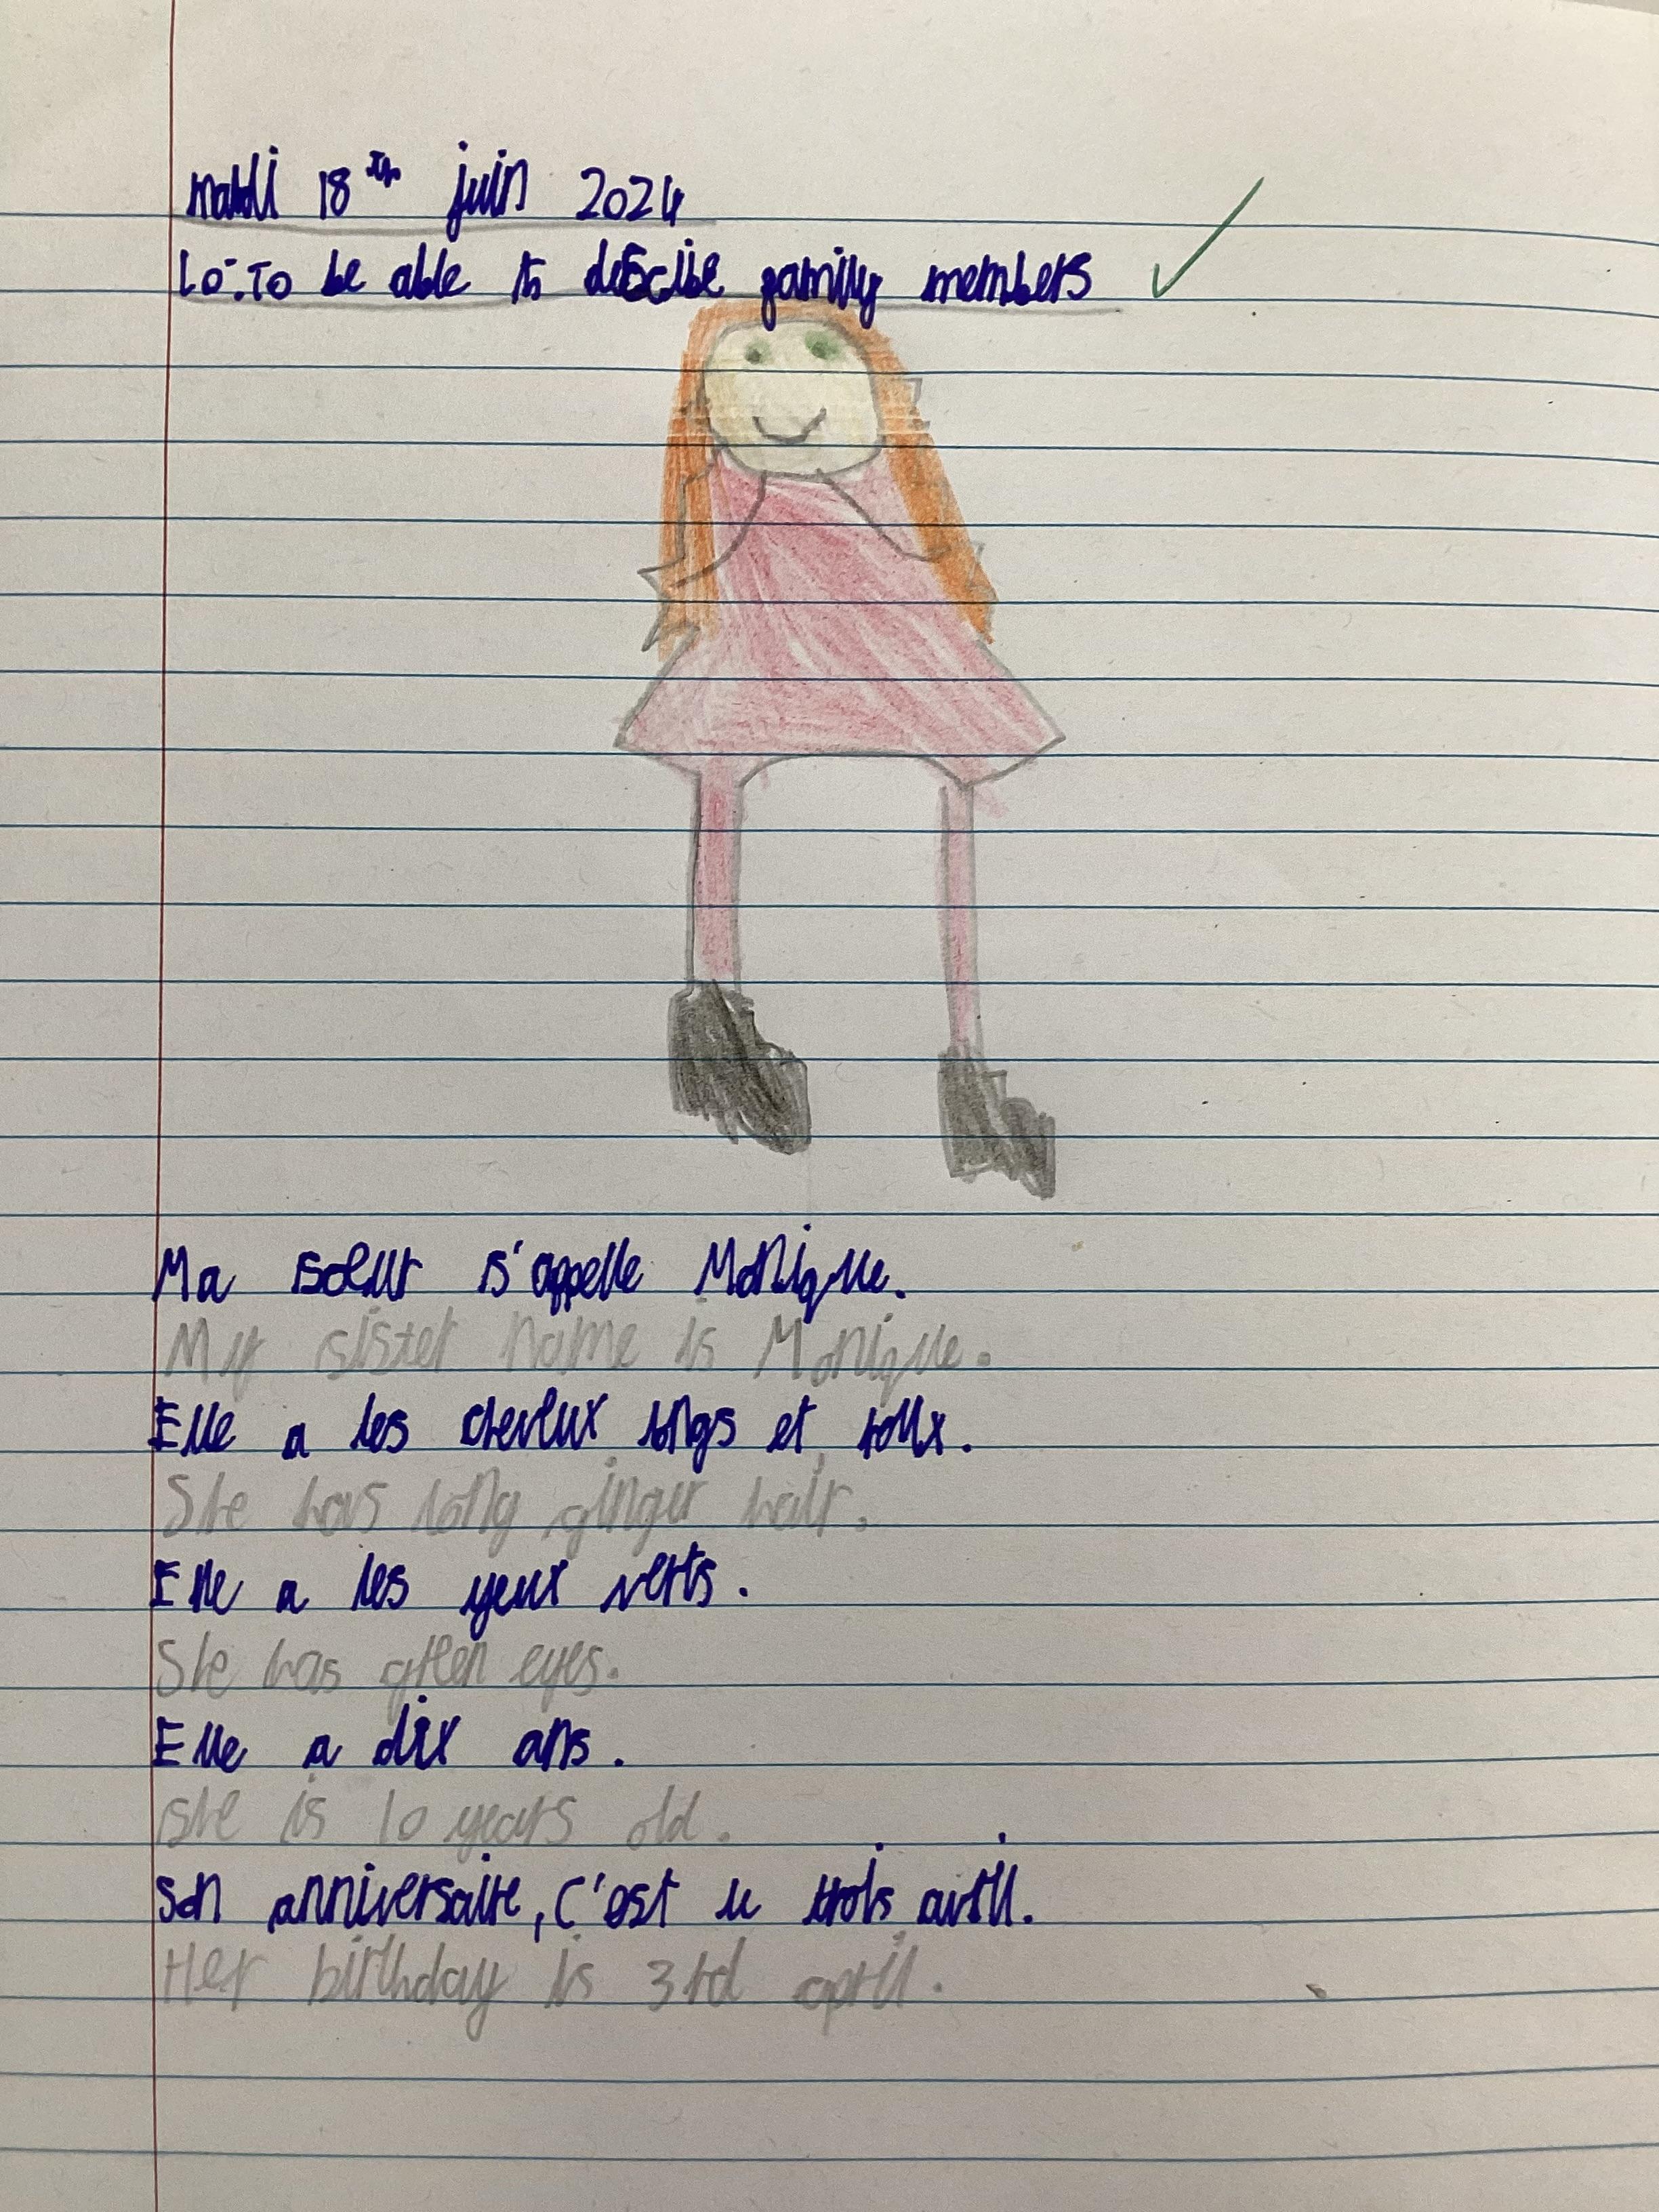 mardi 18th juin 2024
LO: To be able to describe family members
Ma soeur s'appelle Monique.
My sister name is Monique.
Elle a les cheveux longs et roux.
She has long ginger hair.
Elle a les yeux verts.
She has green eyes.
Elle a dix ans.
She is 10 years old.
Son anniversaire, c'est le trois avril.
Her birthday is 3rd april.